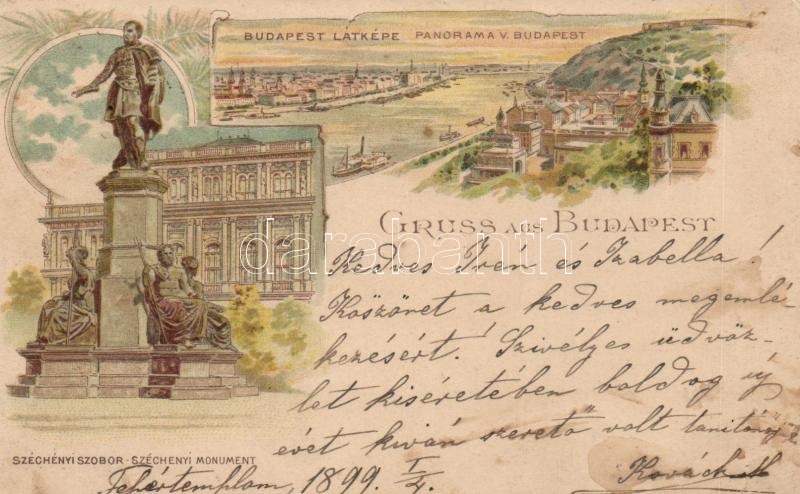 BUDAPEST LÁTKÉPE PANORAMA V. BUDAPEST
GRUSS AUS BUDAPEST
darabanth
Kedves Iván és Izabella!
Köszönet a kedves megemlé-
kezésért! Szivélyes üdvöz-
let kiséretében boldog új
évet kiván szerető volt
SZÉCHÉNYI SZOBOR - SZÉCHENYI MONUMENT
Fehértemplom, 1899 I/2.
Kovách